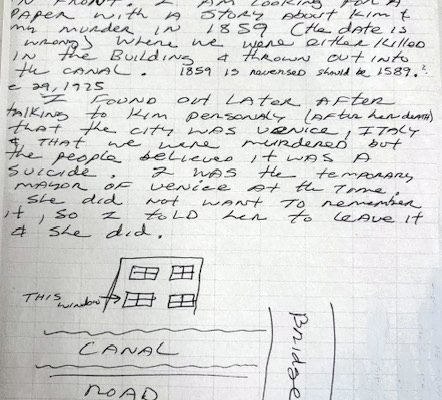 IN FRONT. I AM LOOKING FOR A
PAPER WITH A STORY ABOUT KIM &
my murder IN 1859 (the date is
wrong) where we were either killed
IN the Building & thrown out into
the CANAL. 1859 is reversed should be 1589.?
29, 1975
I FOUND OUT LATER AFTER
talking to Kim personaly (AFTER her death)
that the city was venice, ITALY
& that we were murdered but
the people believed it was A
SUICIDE. I was the temporary
mayor of venice at the time.
She did not want to remember
it, so I told her to leave it
& she did.
THIS window
CANAL
ROAD
Bridge